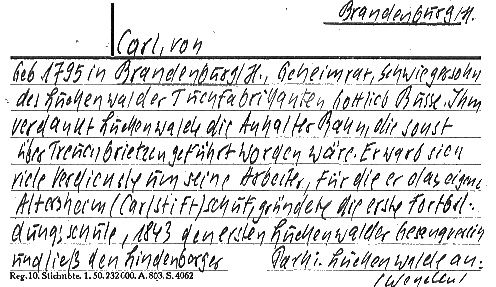 Brandenburg/H.
Carl, von
Geb 1795 in Brandenburg/H., Geheimrat, Schwiegersohn
des Luckenwalder Tuchfabrikanten Gottlieb Busse. Ihm
verdankt Luckenwalde die Anhalter Bahn, die sonst
über Treuenbrietzen geführt worden wäre. Er warb sich
viele Verdienste um seine Arbeiter, für die er das eigene
Altersheim (Carlstift) schuf, gründete die erste Fortbil-
dungsschule, 1843 den ersten Luckenwalder Gesangverein
und ließ den Lindenberger Park i. Luckenwalde an-
Reg. 10. Stichnöte. 1. 50. 232 000. A. 803. S. 4062